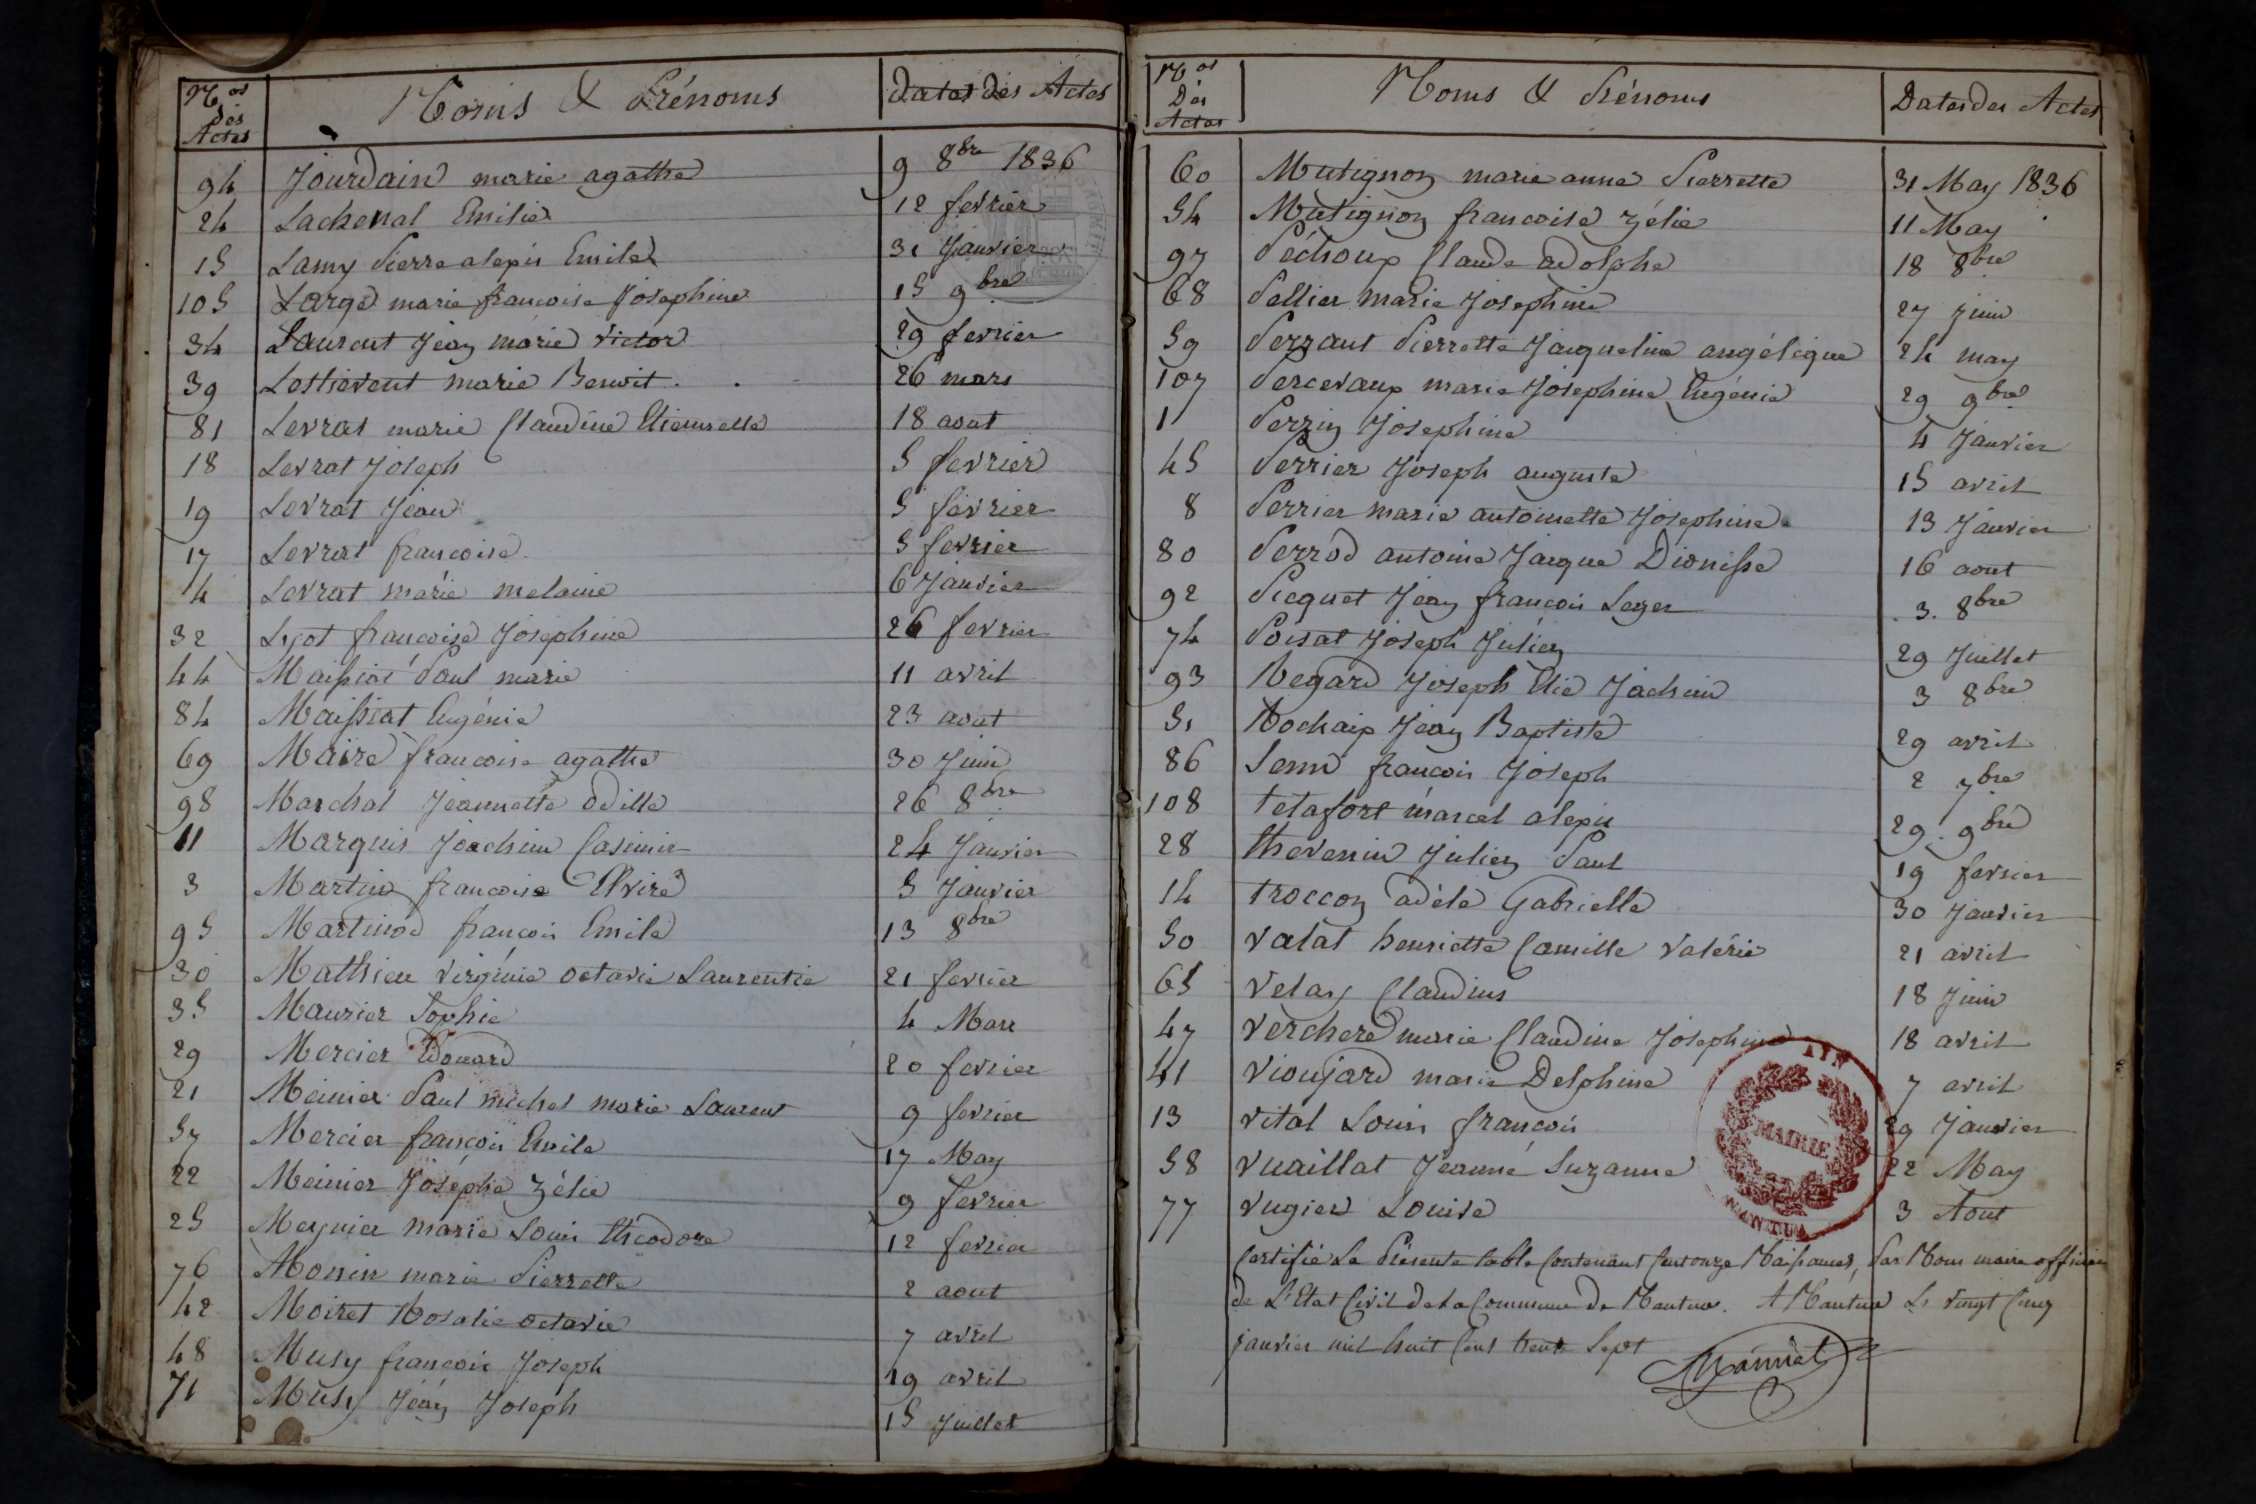 Nos des Actes Noms & Prénoms Dates des Actes
94 Jourdain marie agathe 9 8bre 1836
24 Lachenal Emilie 12 fevrier
15 Lamy Pierre alexis Emile 31 Janvier
105 Large marie francoise Josephine 15 9bre
34 Laurent Jean marie victor 29 fevrier
39 Lestievent marie Benoit 26 mars
81 Levrat marie Claudine Etiennette 18 aout
18 Levrat Joseph 5 fevrier
19 Levrat Jean 5 fevrier
17 Levrat francoise 5 fevrier
4 Levrat marie melanie 6 Janvier
32 Lyot francoise Josephine 26 fevrier
44 Maissiat Paul marie 11 avril
84 Maissiat Eugénie 23 aout
69 Maire francoise agathe 30 Juin
98 Marchal Jeannette odille 26 8bre
11 Marquis Joachim Casimir 24 Janvier
3 Martin francoise Elvire 5 Janvier
95 Martinod francois Emile 13 8bre
30 Mathieu virginie octavie Laurentie 21 fevrier
35 Maurier Sophie 4 Mars
29 Mercier Edouard 20 fevrier
21 Meinier Paul michel marie Laurent 9 fevrier
57 Mercier françois Emile 17 May
22 Meinier Joséphe zélie 9 fevrier
25 Meynier marie Louis théodore 12 fevrier
76 Monin marie Pierrette 2 aout
42 Moiret Rosalie octavie 7 avril
48 Musy francois Joseph 19 avril
71 Musy Jean Joseph 15 Juillet
Nos Des Actes Noms & Prénoms Dates des Actes
60 Mutignon marie anne Pierrette 31 May 1836
54 Mutignon francoise zélie 11 May
97 Péchoux Claude adolphe 18 8bre
68 Pellier marie Josephine 27 juin
59 Perraut Pierrette Jacqueline angélique 24 may
107 Percevaux marie Josephine Eugénie 29 9bre
1 Perrin Josephine 4 Janvier
45 Perrier Joseph auguste 15 avril
8 Perrier marie antoinette Josephine 13 Janvier
80 Perrod antoine Jacque Dionisse 16 aout
92 Picquet Jean francois Leger 3. 8bre
74 Poisat Joseph Julien 29 Juillet
93 Regard Joseph Elie Jachim 3 8bre
51 Rochaix Jean Baptiste 29 avril
86 Senn francois Joseph 2 7bre
108 tétafort marcel alexis 29. 9bre
28 thevenin Julien Paul 19 fevrier
14 troccon adèle Gabrielle 30 Janvier
50 valat henriette Camille valérie 21 avril
65 velay Claudius 18 Juin
47 verchere marie Claudine Joséphine 18 avril
41 vioujard marie Delphine 7 avril
13 vital Louis francois 29 Janvier
58 vuaillat Jeanne Suzanne 22 May
77 vugier Louise 3 Aout
AIN
MAIRIE
Certifié La Présente table Contenant Cent onze Naissances, Par Nous maire officier
de L'Etat Civil de La Commune De Nantua. A Nantua Le vingt Cinq
janvier mil huit Cent trente Sept